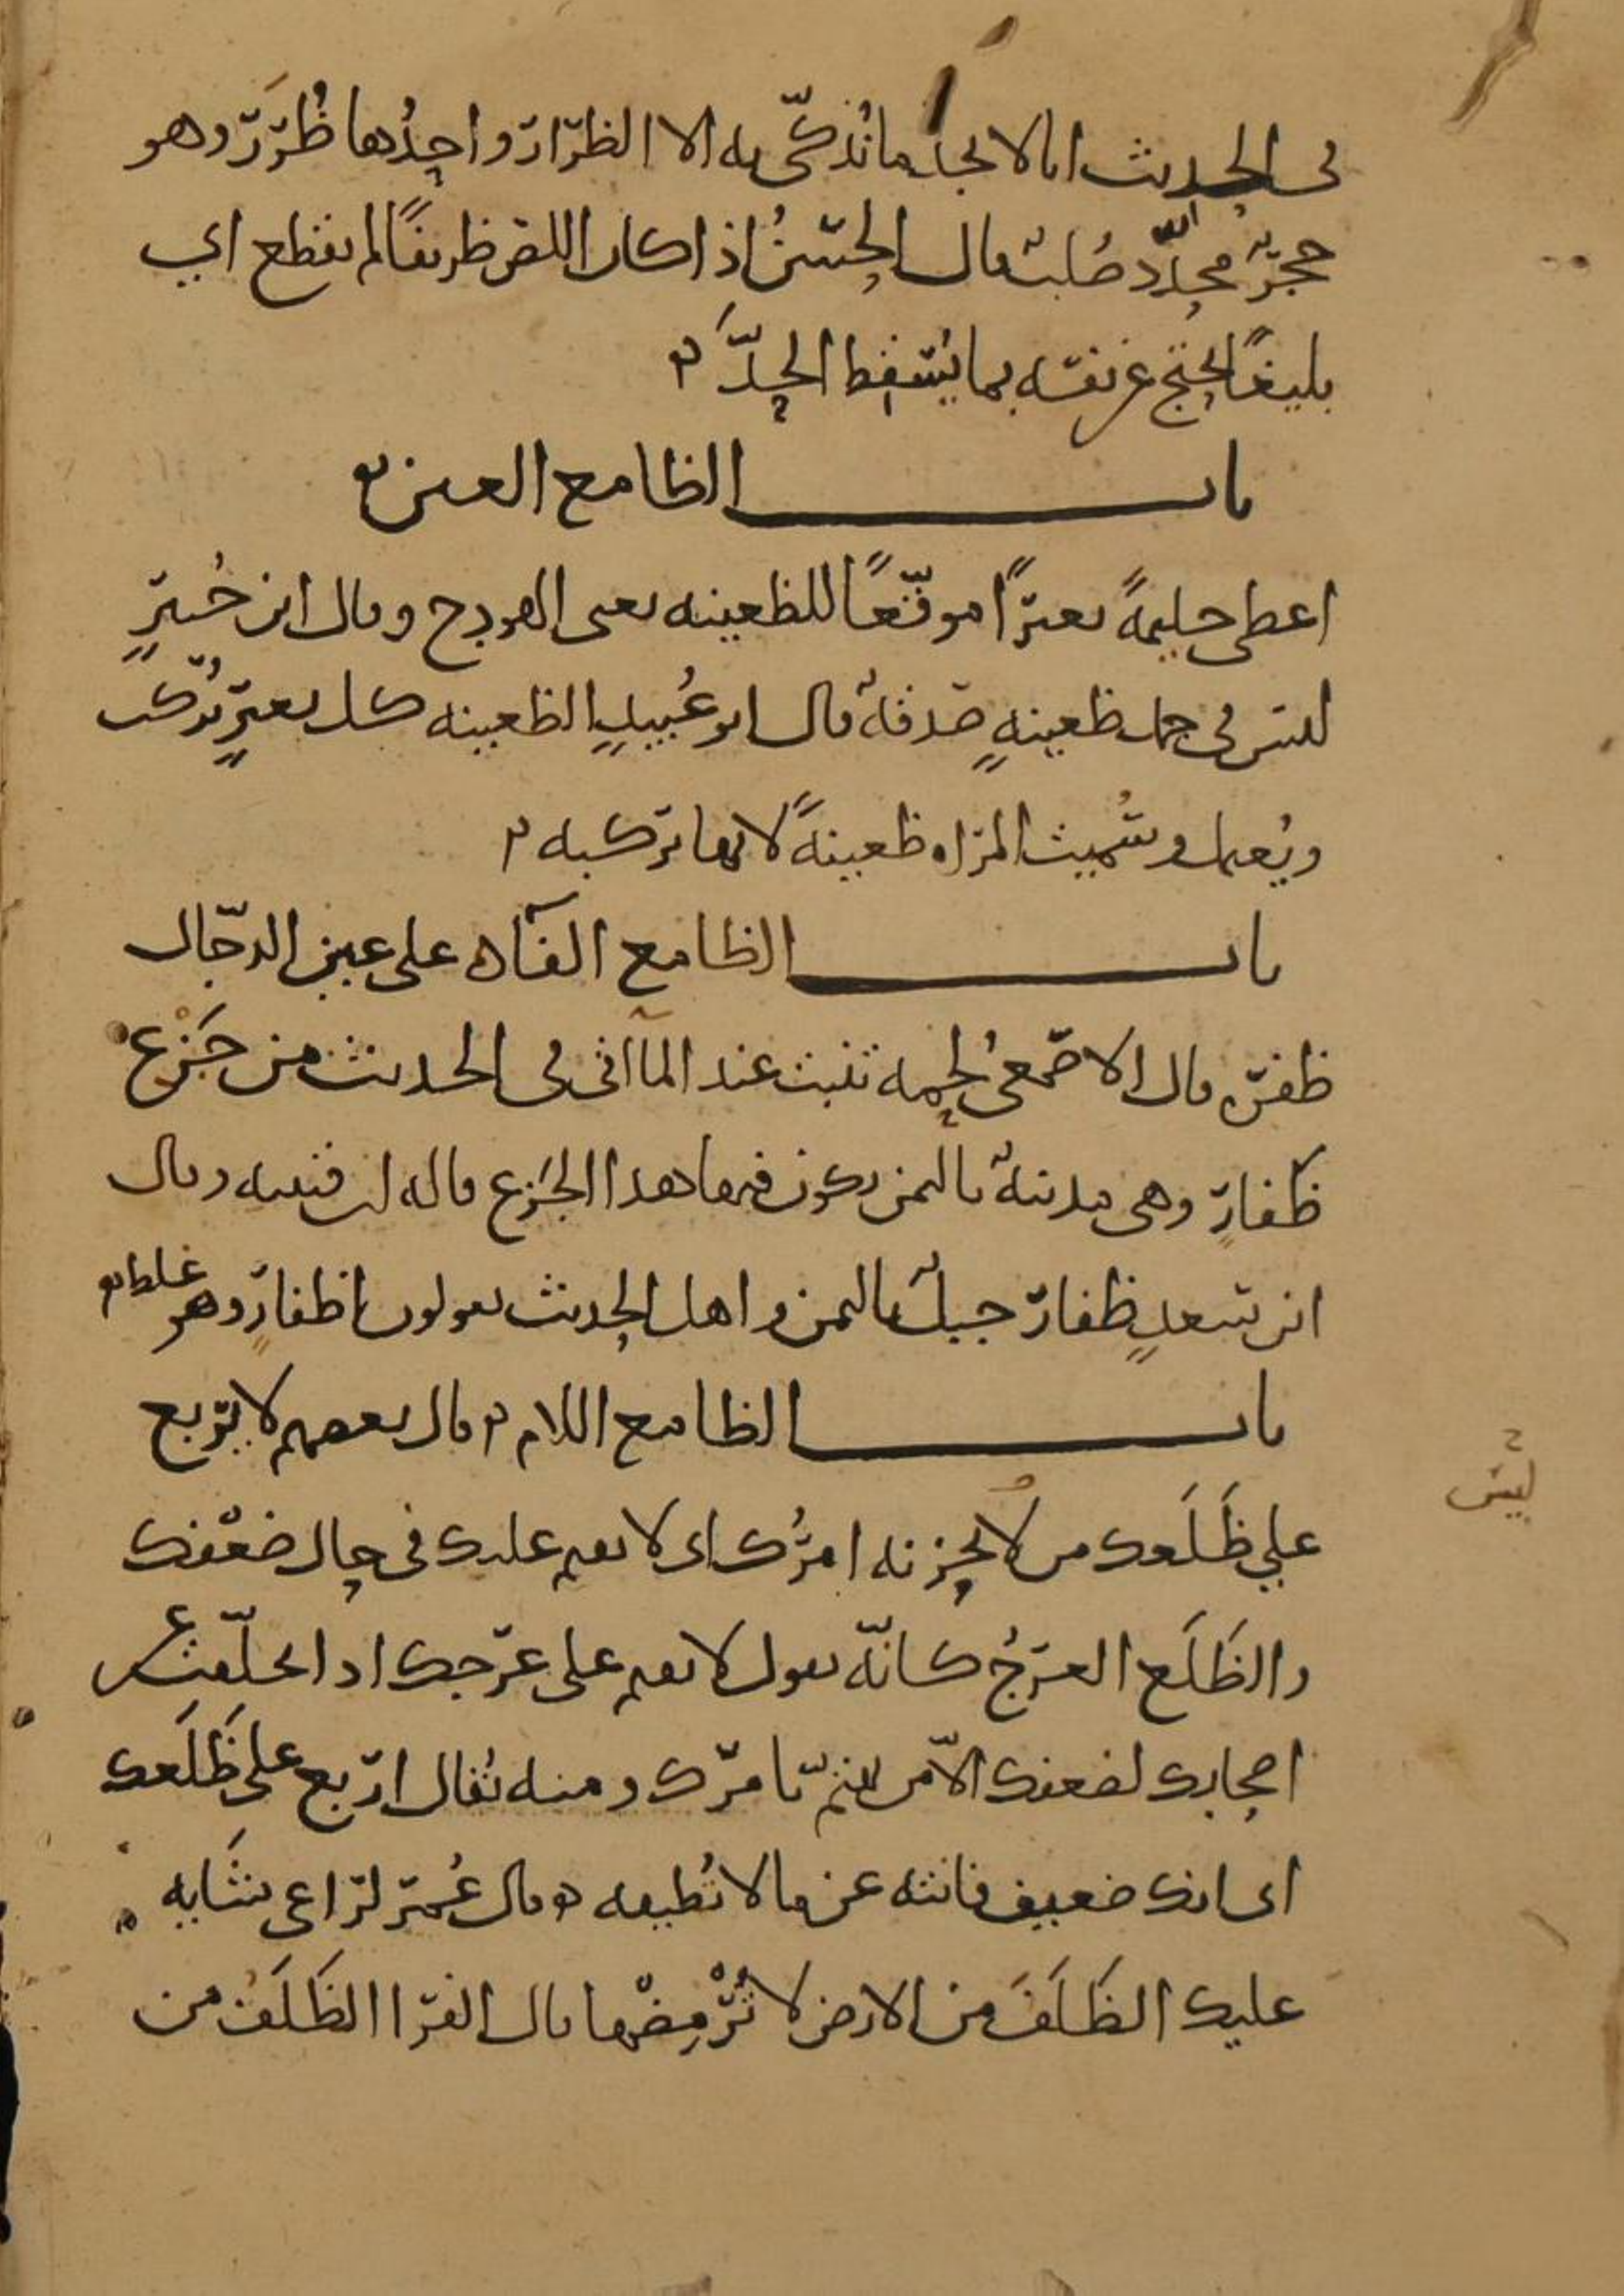 في الحديث انا لا نجد ما نُذكّي به الا الظرار واحدُها ظُرَرٌ وهو
حجرٌ محدّدٌ صُلبٌ قال الحسنُ اذا كان اللص ظريفًا لم يقطع اي
بليغًا احتج عن نفسه بما يُسقط الحدَّ
باب الظا مع العين
اعطى حليمةً بعيرًا موقّعًا للظعينه يعنى الهودج وقال ابن جُبيرٍ
ليس في جمل ظعينهٍ صدقهٌ قال ابو عُبيدٍ الظعينه كل بعيرٍ يُركب
ويُعمل وسُميت المراه ظعينةً لانها تركبه
باب الظا مع الفآء على عين الدجّال
ظفره قال الاصمعيُّ لحمه تنبت عند المآاقي في الحديث من جَزْع
ظَفارِ وهي مدينهٌ باليمن يكون فيها هذا الجَزع قاله ابن قتيبه وقال
ابن سعدٍ ظفار جبلٌ باليمن واهل الحديث يقولون اظفارٍ وهو غلط
باب الظا مع اللام قال بعضهم لا يربع
علي ظَلَعك من لا يحزنه امرُك اى لا يقيم عليك في حال ضعْفك
ليس
والظَلَع العرجُ كانّه يقول لا يقيم على عرجك اذا تخلّفت عن
اصحابك لضعفك الا من يهتم بامرك ومنه يُقال اربع على ظَلَعك
اى انك ضعيف فانته عن ما لا تُطيقه قال عُمر لراعى شَايه
عليك الظَلَفَ من الارض لا تُرْمِضْها قال الفرا الظَلَفُ من